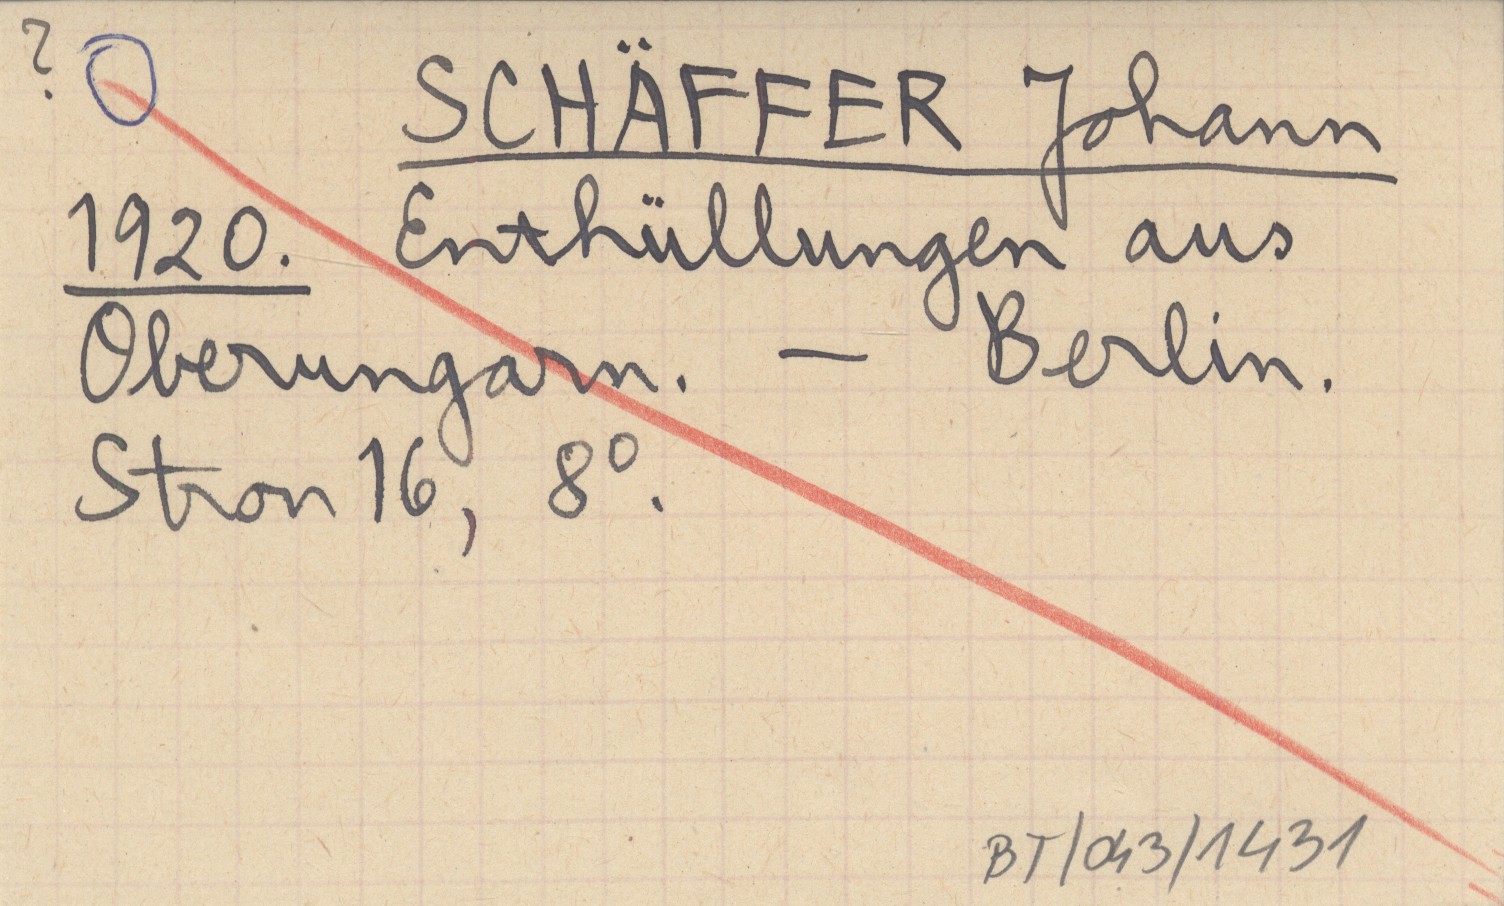 ?
SCHÄFFER Johann
1920. Enthüllungen aus
Oberungarn. — Berlin.
Stron 16, 8º.
BT/043/1431